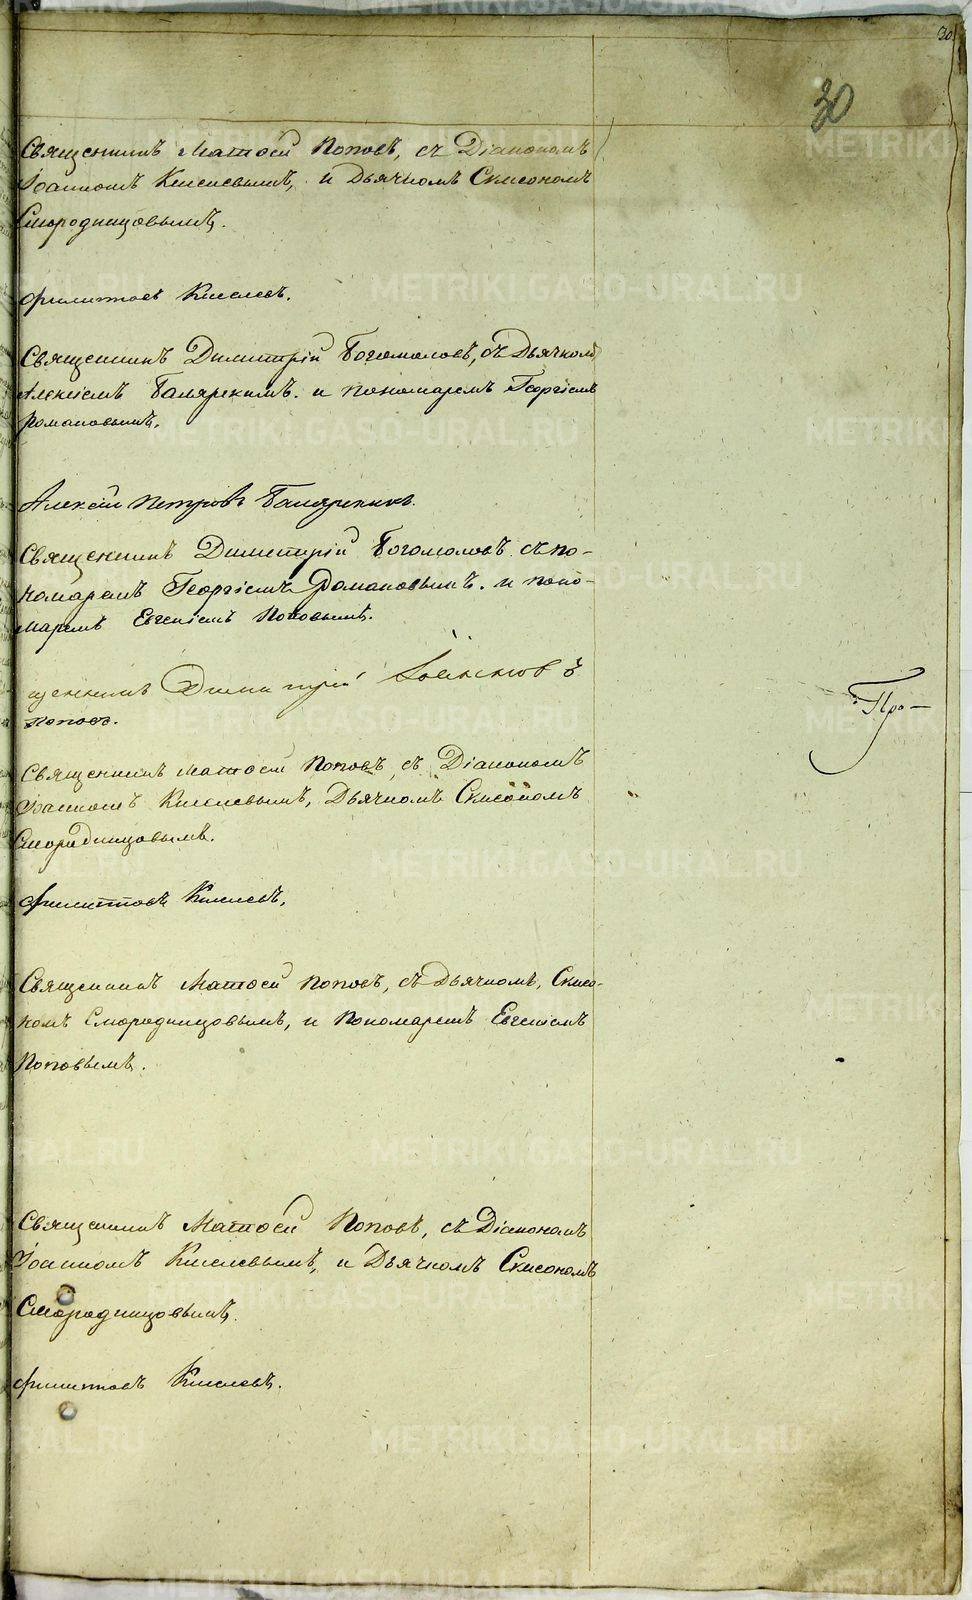 30
30
Священникъ Матѳей Поповъ, съ Діакономъ
Іоанномъ Киселевымъ, и Дьячкомъ Симеономъ
Смородинцовымъ.
Филиттовъ Киселевъ.
Священникъ Димитрій Богомоловъ, съ Дьячкомъ
Алексіемъ Баляркинымъ. и пономаремъ Георгіемъ
Романовымъ.
Алексѣй Петровъ
Священникъ Димитрій Богомоловъ съ по-
номаремъ Георгіемъ Романовымъ. и поно-
маремъ Евгеніемъ Поповымъ.
щенникъ Димитрій Іоанновъ
Поповъ.
Про-
Священникъ Матѳей Поповъ, съ Діакономъ
Іоанномъ Киселевымъ, Дьячкомъ Симеономъ
Смородинцовымъ.
Филиттовъ Киселевъ.
Священникъ Матѳей Поповъ, съ Дьячкомъ, Симео-
номъ Смородинцовымъ, и Пономаремъ Евгеніемъ
Поповымъ.
Священникъ Матѳей Поповъ, съ Діакономъ
Іоанномъ Киселевымъ, и Дьячкомъ Симеономъ
Смородинцовымъ.
Филиттовъ Киселевъ.
METRIKI.GASO-URAL.RU